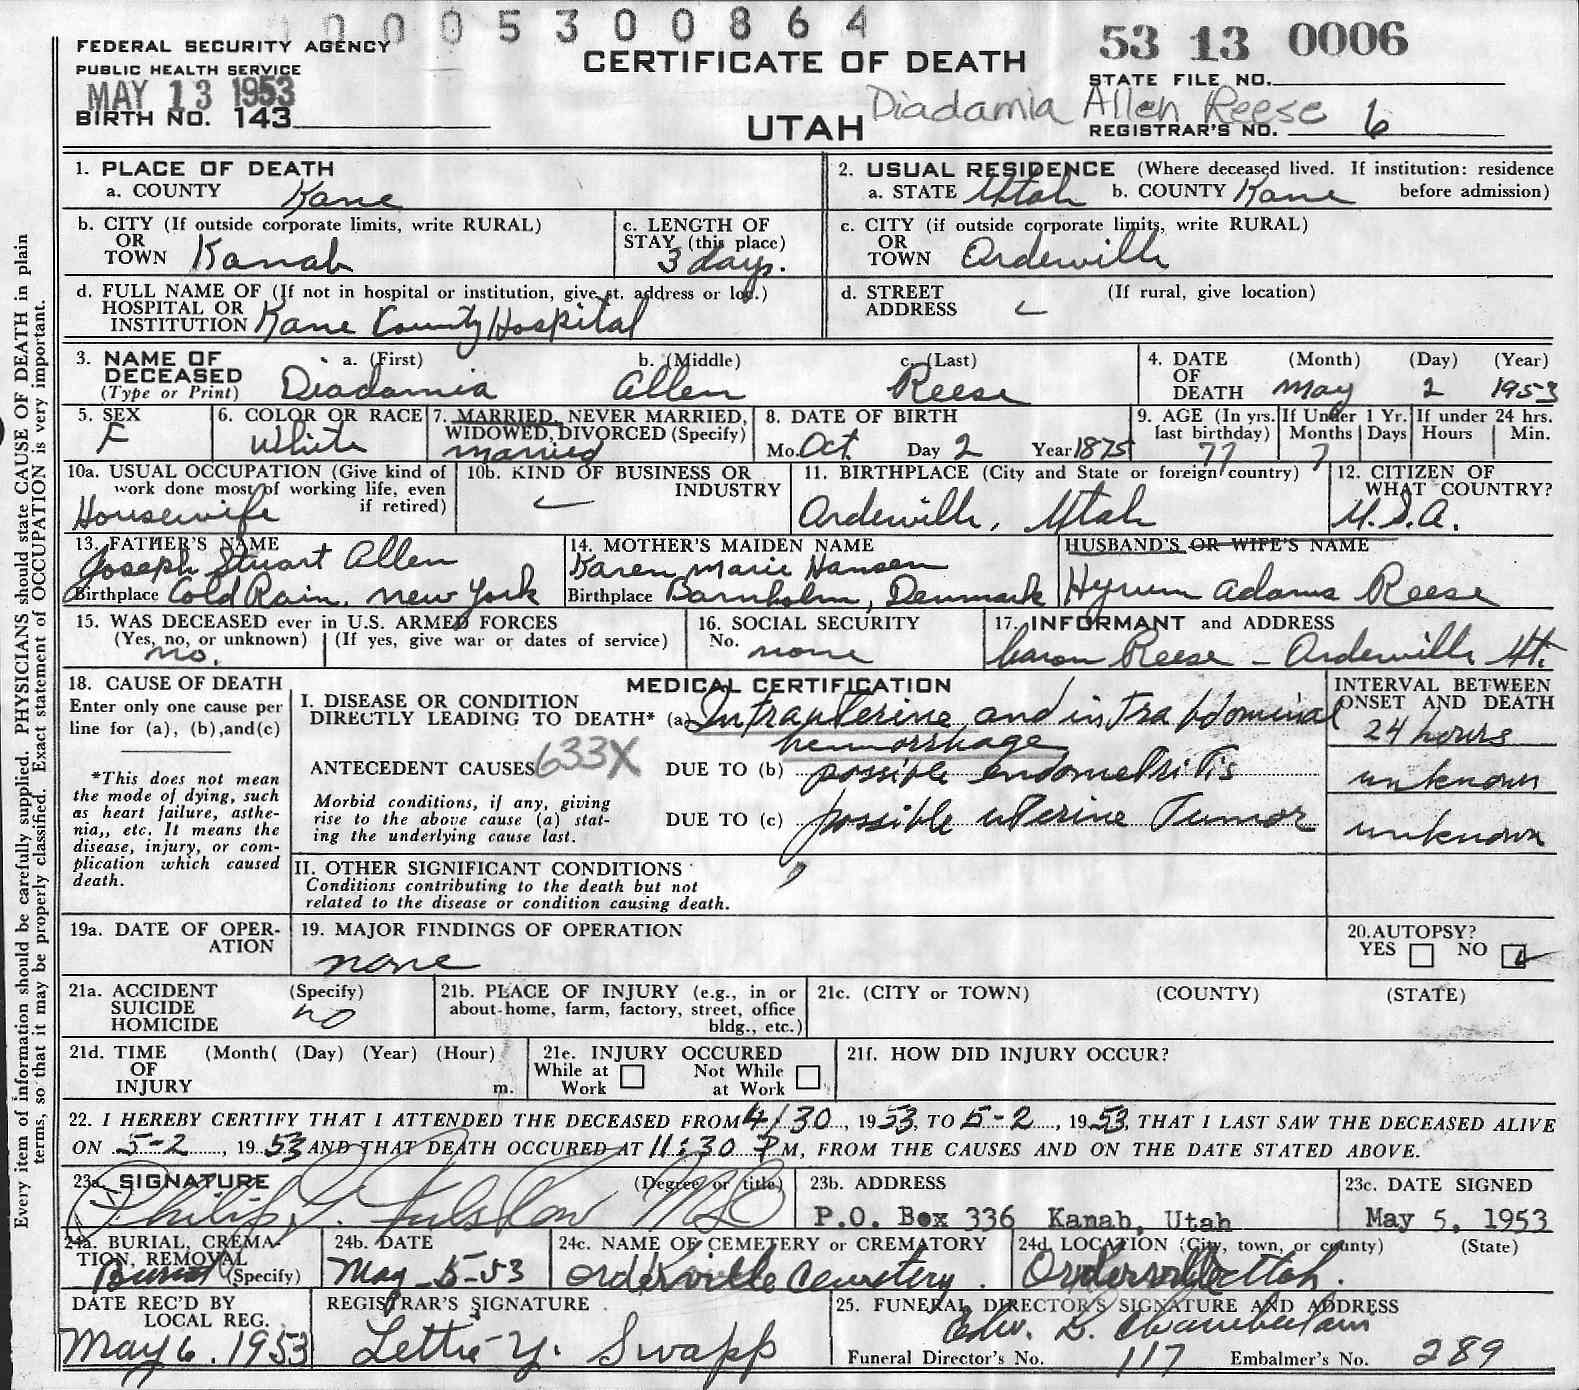 0005300864
FEDERAL SECURITY AGENCY
PUBLIC HEALTH SERVICE
MAY 13 1953
BIRTH NO. 143
CERTIFICATE OF DEATH
UTAH
53 13 0006
STATE FILE NO.
Diadamia Allen Reese
REGISTRAR'S NO. 6
Every item of information should be carefully supplied. PHYSICIANS should state CAUSE OF DEATH in plain
terms, so that it may be properly classified. Exact statement of OCCUPATION is very important.
1. PLACE OF DEATH
a. COUNTY Kane
2. USUAL RESIDENCE (Where deceased lived. If institution: residence
a. STATE Utah b. COUNTY Kane before admission)
b. CITY (If outside corporate limits, write RURAL)
OR
TOWN Kanab
c. LENGTH OF
STAY (this place)
3 days.
c. CITY (if outside corporate limits, write RURAL)
OR
TOWN Orderville
d. FULL NAME OF (If not in hospital or institution, give st. address or loc.)
HOSPITAL OR
INSTITUTION Kane County Hospital
d. STREET (If rural, give location)
ADDRESS
3. NAME OF a. (First) b. (Middle) c. (Last)
DECEASED
(Type or Print) Diadamia Allen Reese
4. DATE (Month) (Day) (Year)
OF
DEATH May 2 1953
5. SEX
F
6. COLOR OR RACE
White
7. MARRIED, NEVER MARRIED,
WIDOWED, DIVORCED (Specify)
Married
8. DATE OF BIRTH
Mo. Oct Day 2 Year 1875
9. AGE (In yrs. If Under 1 Yr. If under 24 hrs.
last birthday) Months Days Hours Min.
77 7
10a. USUAL OCCUPATION (Give kind of
work done most of working life, even
if retired)
Housewife
10b. KIND OF BUSINESS OR
INDUSTRY
11. BIRTHPLACE (City and State or foreign country)
Orderville, Utah
12. CITIZEN OF
WHAT COUNTRY?
U.S.A.
13. FATHER'S NAME
Joseph Stuart Allen
Birthplace Cold Rain, New York
14. MOTHER'S MAIDEN NAME
Karen Marie Hansen
Birthplace Barnholm, Denmark
HUSBAND'S OR WIFE'S NAME
Hyrum Adams Reese
15. WAS DECEASED ever in U.S. ARMED FORCES
(Yes, no, or unknown) (If yes, give war or dates of service)
no.
16. SOCIAL SECURITY
No. none
17. INFORMANT and ADDRESS
Reese - Orderville Ut.
18. CAUSE OF DEATH
Enter only one cause per
line for (a), (b), and (c)
*This does not mean
the mode of dying, such
as heart failure, asthe-
nia,, etc. It means the
disease, injury, or com-
plication which caused
death.
MEDICAL CERTIFICATION
I. DISEASE OR CONDITION
DIRECTLY LEADING TO DEATH* (a) Intrauterine and intrabdominal
hemorrhage
ANTECEDENT CAUSES 633X DUE TO (b) possible endometritis
Morbid conditions, if any, giving
rise to the above cause (a) stat-
ing the underlying cause last.
DUE TO (c) possible uterine Tumor
INTERVAL BETWEEN
ONSET AND DEATH
24 hours
unknown
unknown
II. OTHER SIGNIFICANT CONDITIONS
Conditions contributing to the death but not
related to the disease or condition causing death.
19a. DATE OF OPER-
ATION
19. MAJOR FINDINGS OF OPERATION
none
20. AUTOPSY?
YES NO
21a. ACCIDENT (Specify)
SUICIDE
HOMICIDE no
21b. PLACE OF INJURY (e.g., in or
about home, farm, factory, street, office
bldg., etc.)
21c. (CITY or TOWN) (COUNTY) (STATE)
21d. TIME (Month( (Day) (Year) (Hour)
OF
INJURY m.
21e. INJURY OCCURED
While at Not While
Work at Work
21f. HOW DID INJURY OCCUR?
22. I HEREBY CERTIFY THAT I ATTENDED THE DECEASED FROM 4/30, 1953, TO 5-2, 1953, THAT I LAST SAW THE DECEASED ALIVE
ON 5-2, 1953 AND THAT DEATH OCCURED AT 11:30 P M, FROM THE CAUSES AND ON THE DATE STATED ABOVE.
23a. SIGNATURE (Degree or title)
Philip MD
23b. ADDRESS
P.O. Box 336 Kanab, Utah
23c. DATE SIGNED
May 5, 1953
24a. BURIAL, CREMA-
TION, REMOVAL
Burial (Specify)
24b. DATE
May 5-53
24c. NAME OF CEMETERY or CREMATORY
Orderville Cemetery.
24d. LOCATION (City, town, or county) (State)
Orderville Utah.
DATE REC'D BY
LOCAL REG.
May 6, 1953
REGISTRAR'S SIGNATURE
Lettie Y. Swapp
25. FUNERAL DIRECTOR'S SIGNATURE AND ADDRESS
Edw. Chamberlain
Funeral Director's No. 117 Embalmer's No. 289